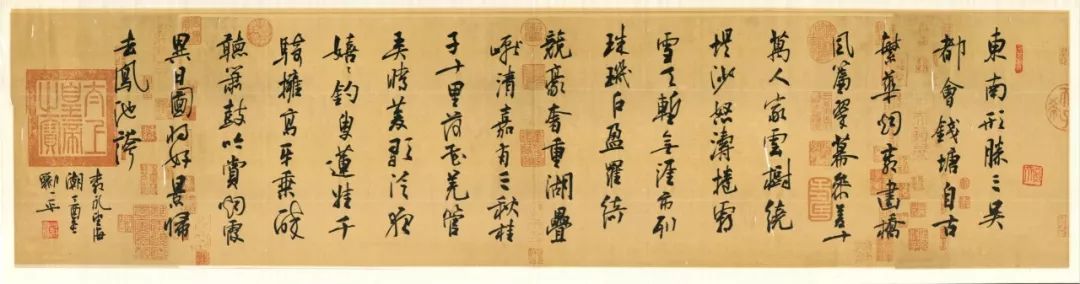 東南形勝三吳
都會錢塘自古
繁華烟柳畫橋
風簾翠幕參差十
萬人家雲樹繞
堤沙怒濤捲霜
雪天塹無涯市列
珠璣戶盈羅綺
競豪奢重湖疊
巘清嘉有三秋桂
子十里荷花羌管
弄晴菱歌泛夜
嬉々釣叟蓮娃千
騎擁高牙乘醉
聽簫鼓吟賞烟霞
異日圖將好景歸
去鳳池誇
柳永望海
潮丁酉
太上
皇帝
之寶